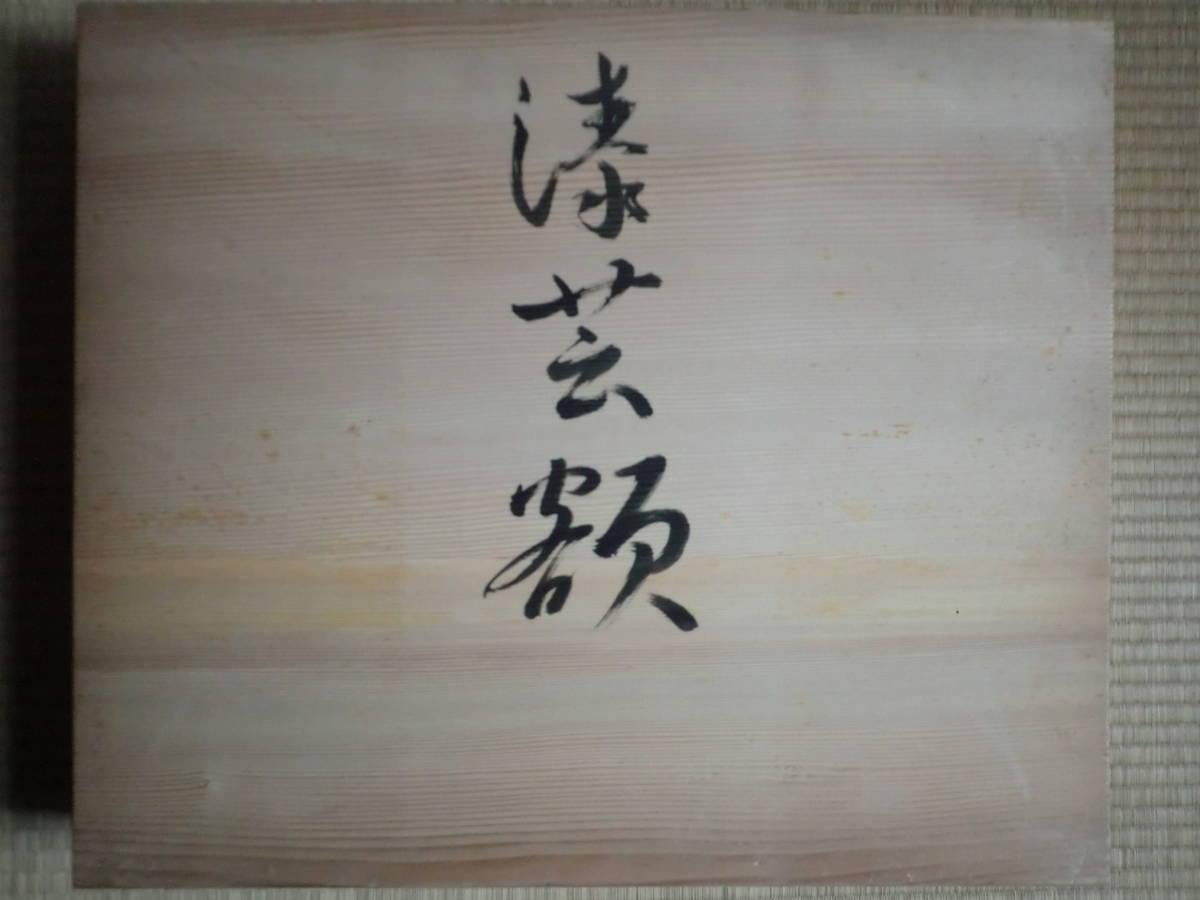 漆芸額